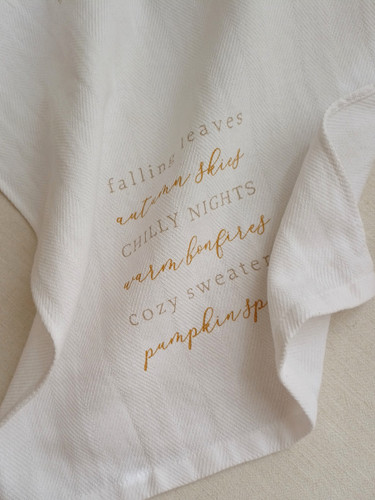 falling leaves
autumn skies
CHILLY NIGHTS
warm bonfires
cozy sweater
pumpkin sp